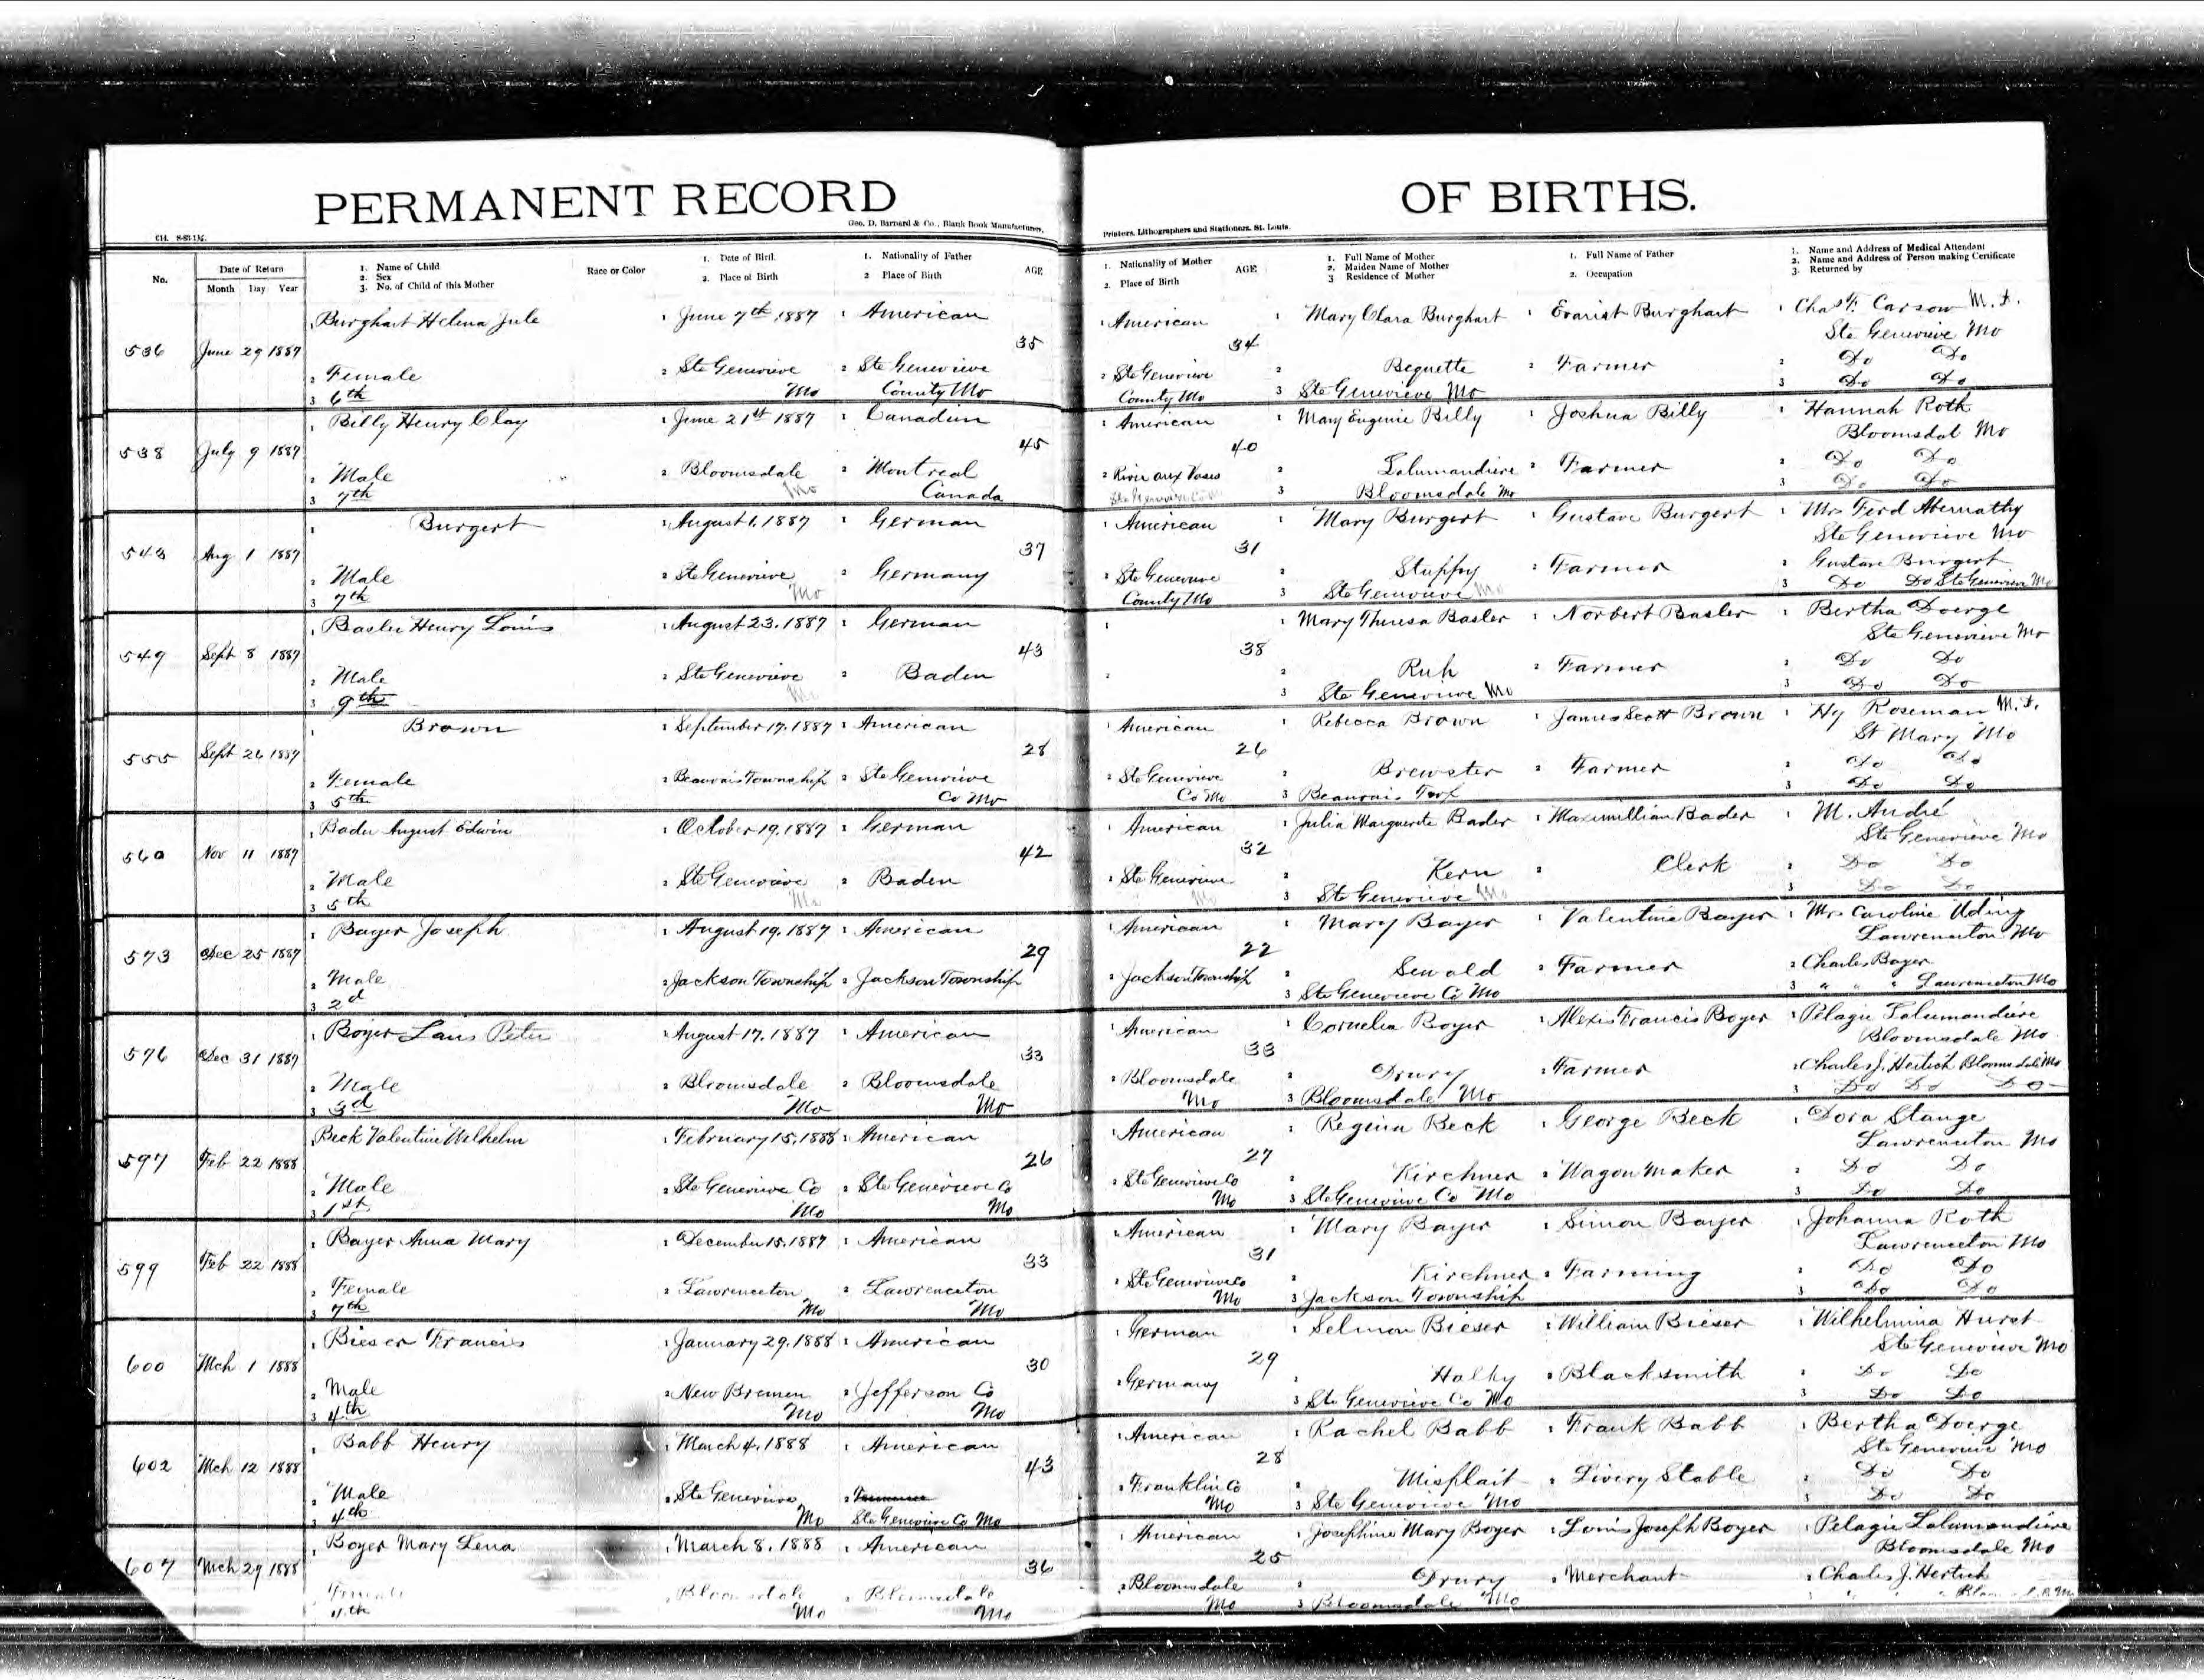 PERMANENT RECORD OF BIRTHS.
CH. 8-83-1½. Geo. D. Barnard & Co., Blank Book Manufacturers, Printers, Lithographers and Stationers, St. Louis.
No.
Date of Return
Month Day Year
1. Name of Child
2. Sex
3. No. of Child of this Mother
Race or Color
1. Date of Birth
2. Place of Birth
1. Nationality of Father
2 Place of Birth
AGE
1. Nationality of Mother
2. Place of Birth
AGE
1. Full Name of Mother
2. Maiden Name of Mother
3 Residence of Mother
1. Full Name of Father
2. Occupation
1. Name and Address of Medical Attendant
2. Name and Address of Person making Certificate
3. Returned by
536 June 29 1887
1 Burghart Helena Jule
2 Female
3 6th
1 June 7th, 1887
2 Ste Genevieve Mo
1 American
2 Ste Genevieve County Mo
35
1 American
2 Ste Genevieve County Mo
34
1 Mary Clara Burghart
2 Bequette
3 Ste Genevieve Mo
1 Evarist Burghart
2 Farmer
1 Chas F. Carsow M.D.
Ste Genevieve Mo
2 Do Do
3 Do Do
538 July 9 1887
1 Billy Henry Clay
2 Male
3 7th
1 June 21st 1887
2 Bloomsdale Mo
1 Canadian
2 Montreal Canada
45
1 American
2 River aux Vases
Ste Genevieve Co
40
1 Mary Eugenie Billy
2 Lalumandiere
3 Bloomsdale Mo
1 Joshua Billy
2 Farmer
1 Hannah Roth
Bloomsdal Mo
2 Do Do
3 Do Do
543 Aug 1 1887
1 Burgert
2 Male
3 7th
1 August 1, 1887
2 Ste Genevieve Mo
1 German
2 Germany
37
1 American
2 Ste Genevieve County Mo
31
1 Mary Burgert
2 Stuppy
3 Ste Genevieve Mo
1 Gustave Burgert
2 Farmer
1 Mrs Ferd Abernathy
Ste Genevieve Mo
2 Gustave Burgert
3 Do Do Ste Genevieve Mo
549 Sept 8 1887
1 Basler Henry Louis
2 Male
3 9th
1 August 23. 1887
2 Ste Genevieve Mo
1 German
2 Baden
43
1
2
38
1 Mary Theresa Basler
2 Ruh
3 Ste Genevieve Mo
1 Norbert Basler
2 Farmer
1 Bertha Doerge
Ste Genevieve Mo
2 Do Do
3 Do Do
555 Sept 26 1887
1 Brown
2 Female
3 5th
1 September 17. 1887
2 Beauvais Township
1 American
2 Ste Genevieve Co Mo
28
1 American
2 Ste Genevieve Co Mo
26
1 Rebecca Brown
2 Brewster
3 Beauvais Twp
1 James Scott Brown
2 Farmer
1 Hy Roseman M.D.
St Mary Mo
2 Do Do
3 Do Do
560 Nov 11 1887
1 Bader August Edwin
2 Male
3 5th
1 October 19. 1887
2 Ste Genevieve Mo
1 German
2 Baden
42
1 American
2 Ste Genevieve Mo
32
1 Julia Marguerite Bader
2 Kern
3 Ste Genevieve Mo
1 Maximillian Bader
2 Clerk
1 M. André
Ste Genevieve Mo
2 Do Do
3 Do Do
573 Dec 25 1887
1 Bayer Joseph
2 Male
3 2d
1 August 19. 1887
2 Jackson Township
1 American
2 Jackson Township
29
1 American
2 Jackson Township
22
1 Mary Bayer
2 Sewald
3 Ste Genevieve Co Mo
1 Valentine Bayer
2 Farmer
1 Mrs Caroline Uding
Lawrenceton Mo
2 Charles Bayer
3 " " " Lawrenceton Mo
576 Dec 31 1887
1 Boyer Louis Peter
2 Male
3 3d
1 August 17. 1887
2 Bloomsdale Mo
1 American
2 Bloomsdale Mo
33
1 American
2 Bloomsdale Mo
33
1 Cornelia Boyer
2 Drury
3 Bloomsdale Mo
1 Alexis Francis Boyer
2 Farmer
1 Pelagie Lalumandiere
Bloomsdale Mo
2 Charles J. Hertich Bloomsdale Mo
3 Do Do Do
597 Feb 22 1888
1 Beck Valentine Wilhelm
2 Male
3 1st
1 February 15. 1888
2 Ste Genevieve Co Mo
1 American
2 Ste Genevieve Co Mo
26
1 American
2 Ste Genevieve Co Mo
27
1 Regina Beck
2 Kirchner
3 Ste Genevieve Co Mo
1 George Beck
2 Wagon Maker
1 Dora Stange
Lawrenceton Mo
2 Do Do
3 Do Do
599 Feb 22 1888
1 Bayer Anna Mary
2 Female
3 7th
1 December 15. 1887
2 Lawrenceton Mo
1 American
2 Lawrenceton Mo
33
1 American
2 Ste Genevieve Co Mo
31
1 Mary Bayer
2 Kirchner
3 Jackson Township
1 Simon Bayer
2 Farming
1 Johanna Roth
Lawrenceton Mo
2 Do Do
3 Do Do
600 Mch 1 1888
1 Bieser Francis
2 Male
3 4th
1 January 29. 1888
2 New Bremen Mo
1 American
2 Jefferson Co Mo
30
1 German
2 Germany
29
1 Selmon Bieser
2 Halky
3 Ste Genevieve Co Mo
1 William Bieser
2 Blacksmith
1 Wilhelmina Hurst
Ste Genevieve Mo
2 Do Do
3 Do Do
602 Mch 12 1888
1 Babb Henry
2 Male
3 4th
1 March 4. 1888
2 Ste Genevieve Mo
1 American
2 Ste Genevieve Co Mo
43
1 American
2 Franklin Co Mo
28
1 Rachel Babb
2 Misplait
3 Ste Genevieve Mo
1 Frank Babb
2 Livery Stable
1 Bertha Doerge
Ste Genevieve Mo
2 Do Do
3 Do Do
607 Mch 29 1888
1 Boyer Mary Lena
Female
11th
1 March 8. 1888
2 Bloomsdale Mo
1 American
2 Bloomsdale Mo
36
1 American
2 Bloomsdale Mo
25
1 Josephine Mary Boyer
2 Drury
3 Bloomsdale Mo
1 Louis Joseph Boyer
2 Merchant
1 Pelagie Lalumandiere
Bloomsdale Mo
2 Charles J. Hertich